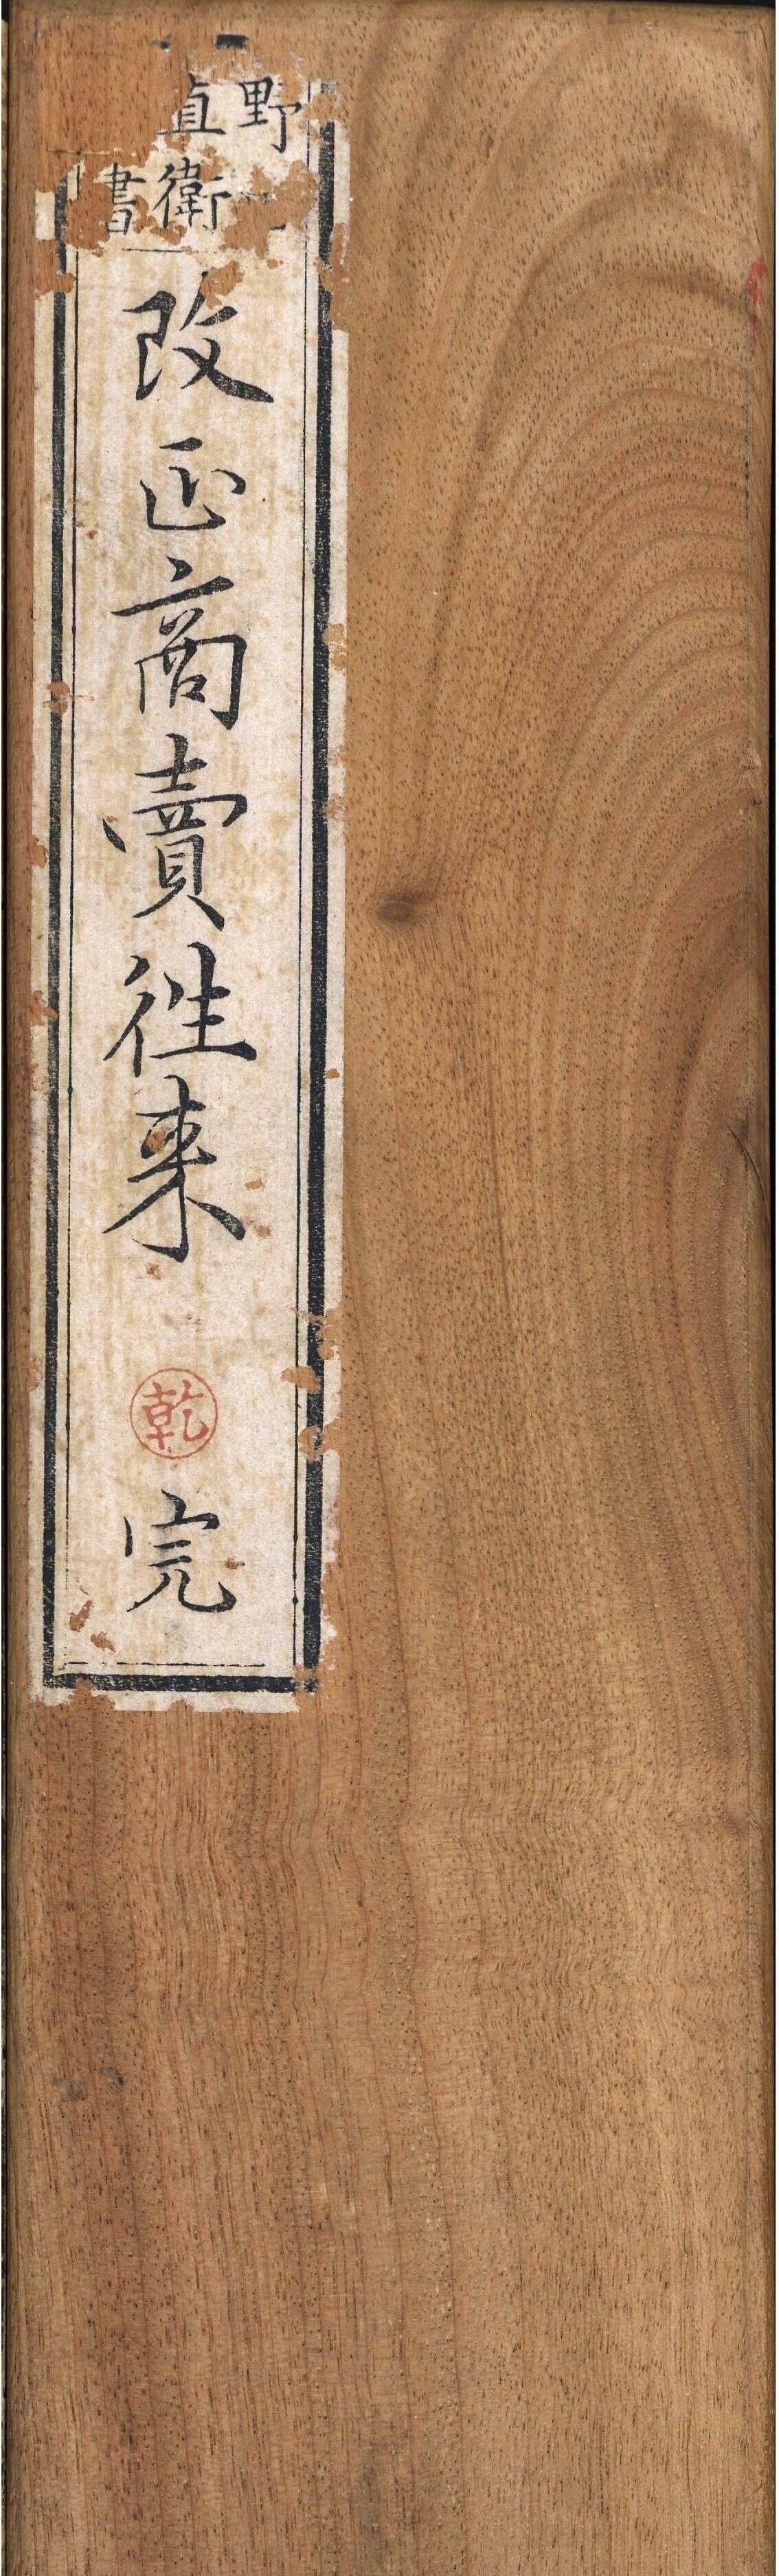 野
直衛
書
改正商賣徃来
乾
完